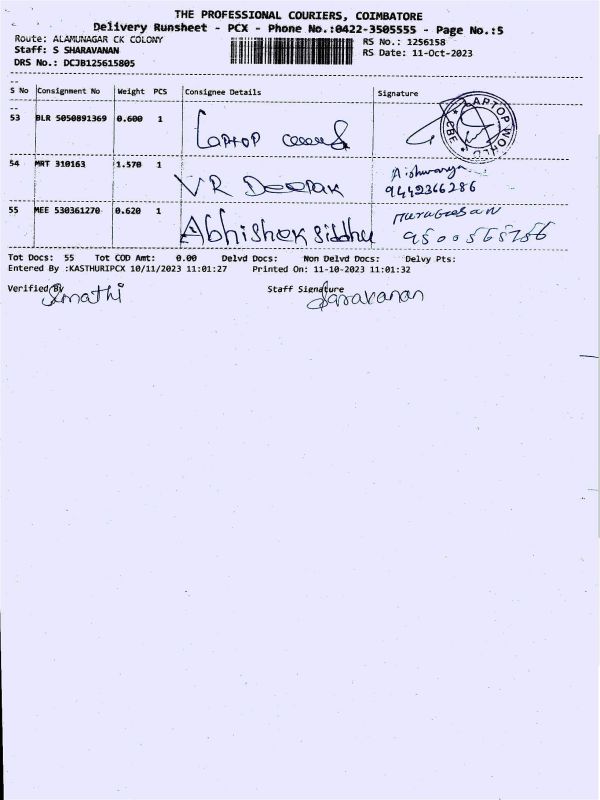 THE PROFESSIONAL COURIERS, COIMBATORE
Delivery Runsheet - PCX - Phone No.:0422-3505555 - Page No.:5
Route: ALAMUNAGAR CK COLONY
RS No.: 1256158
Staff: S SHARAVANAN
RS Date: 11-Oct-2023
DRS No.: DCJB125615805
S No Consignment No Weight PCS Consignee Details Signature
53 BLR 5050891369 0.600 1 Laptop
LAPTOP WORLD CBE
54 MRT 310163 1.570 1 VR Deepak Aishwarya
9442366286
55 MEE 530361270 0.620 1 Abhishek siddhu Murugesan
9500565756
Tot Docs: 55 Tot COD Amt: 0.00 Delvd Docs: Non Delvd Docs: Delvy Pts:
Entered By :KASTHURIPCX 10/11/2023 11:01:27 Printed On: 11-10-2023 11:01:32
Verified By Staff Signature
Saravanan